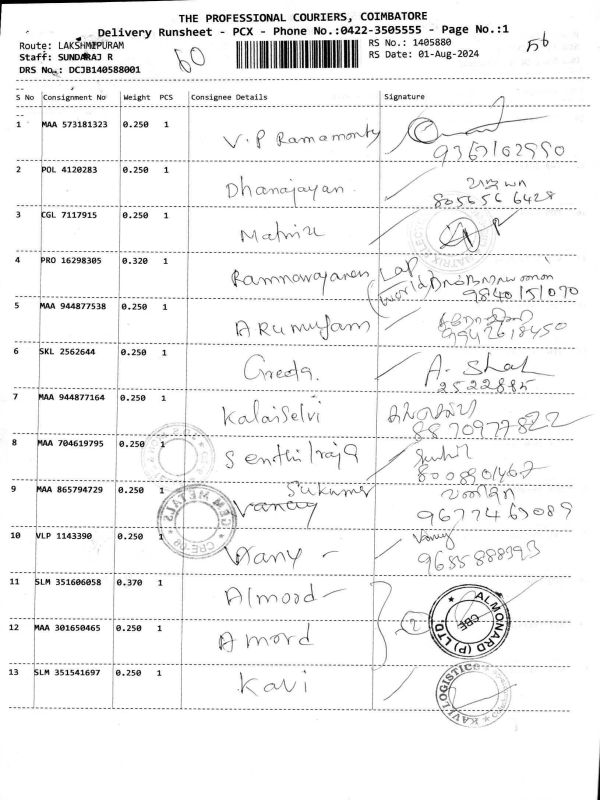 THE PROFESSIONAL COURIERS, COIMBATORE
Delivery Runsheet - PCX - Phone No.:0422-3505555 - Page No.:1
Route: LAKSHMIPURAM
RS No.: 1405880
Staff: SUNDARAJ R
RS Date: 01-Aug-2024
DRS No.: DCJB140588001
60
56
S No Consignment No Weight PCS Consignee Details Signature
1 MAA 573181323 0.250 1 V.P Ramamonty
2 POL 4120283 0.250 1 Dhanajayan
8056566428
3 CGL 7117915 0.250 1
4 PRO 16298305 0.320 1 Ramnarayanan LaP
(World
9840151070
5 MAA 944877538 0.250 1 ARumugam
9942618450
6 SKL 2562644 0.250 1 Greeta. A. Shah
2522885
7 MAA 944877164 0.250 1 KalaiSelvi
8 MAA 704619795 0.250 1 Senthilraja
8008901467
9 MAA 865794729 0.250 1 Sukumar
9677463089
10 VLP 1143390 0.250 1 Vany -
11 SLM 351606058 0.370 1 Almord -
12 MAA 301650465 0.250 1 Amord
2
ALMONARD (P) LTD.
CBE
13 SLM 351541697 0.250 1 Kavi
KAVI LOGISTICS
GEM METALS
CBE